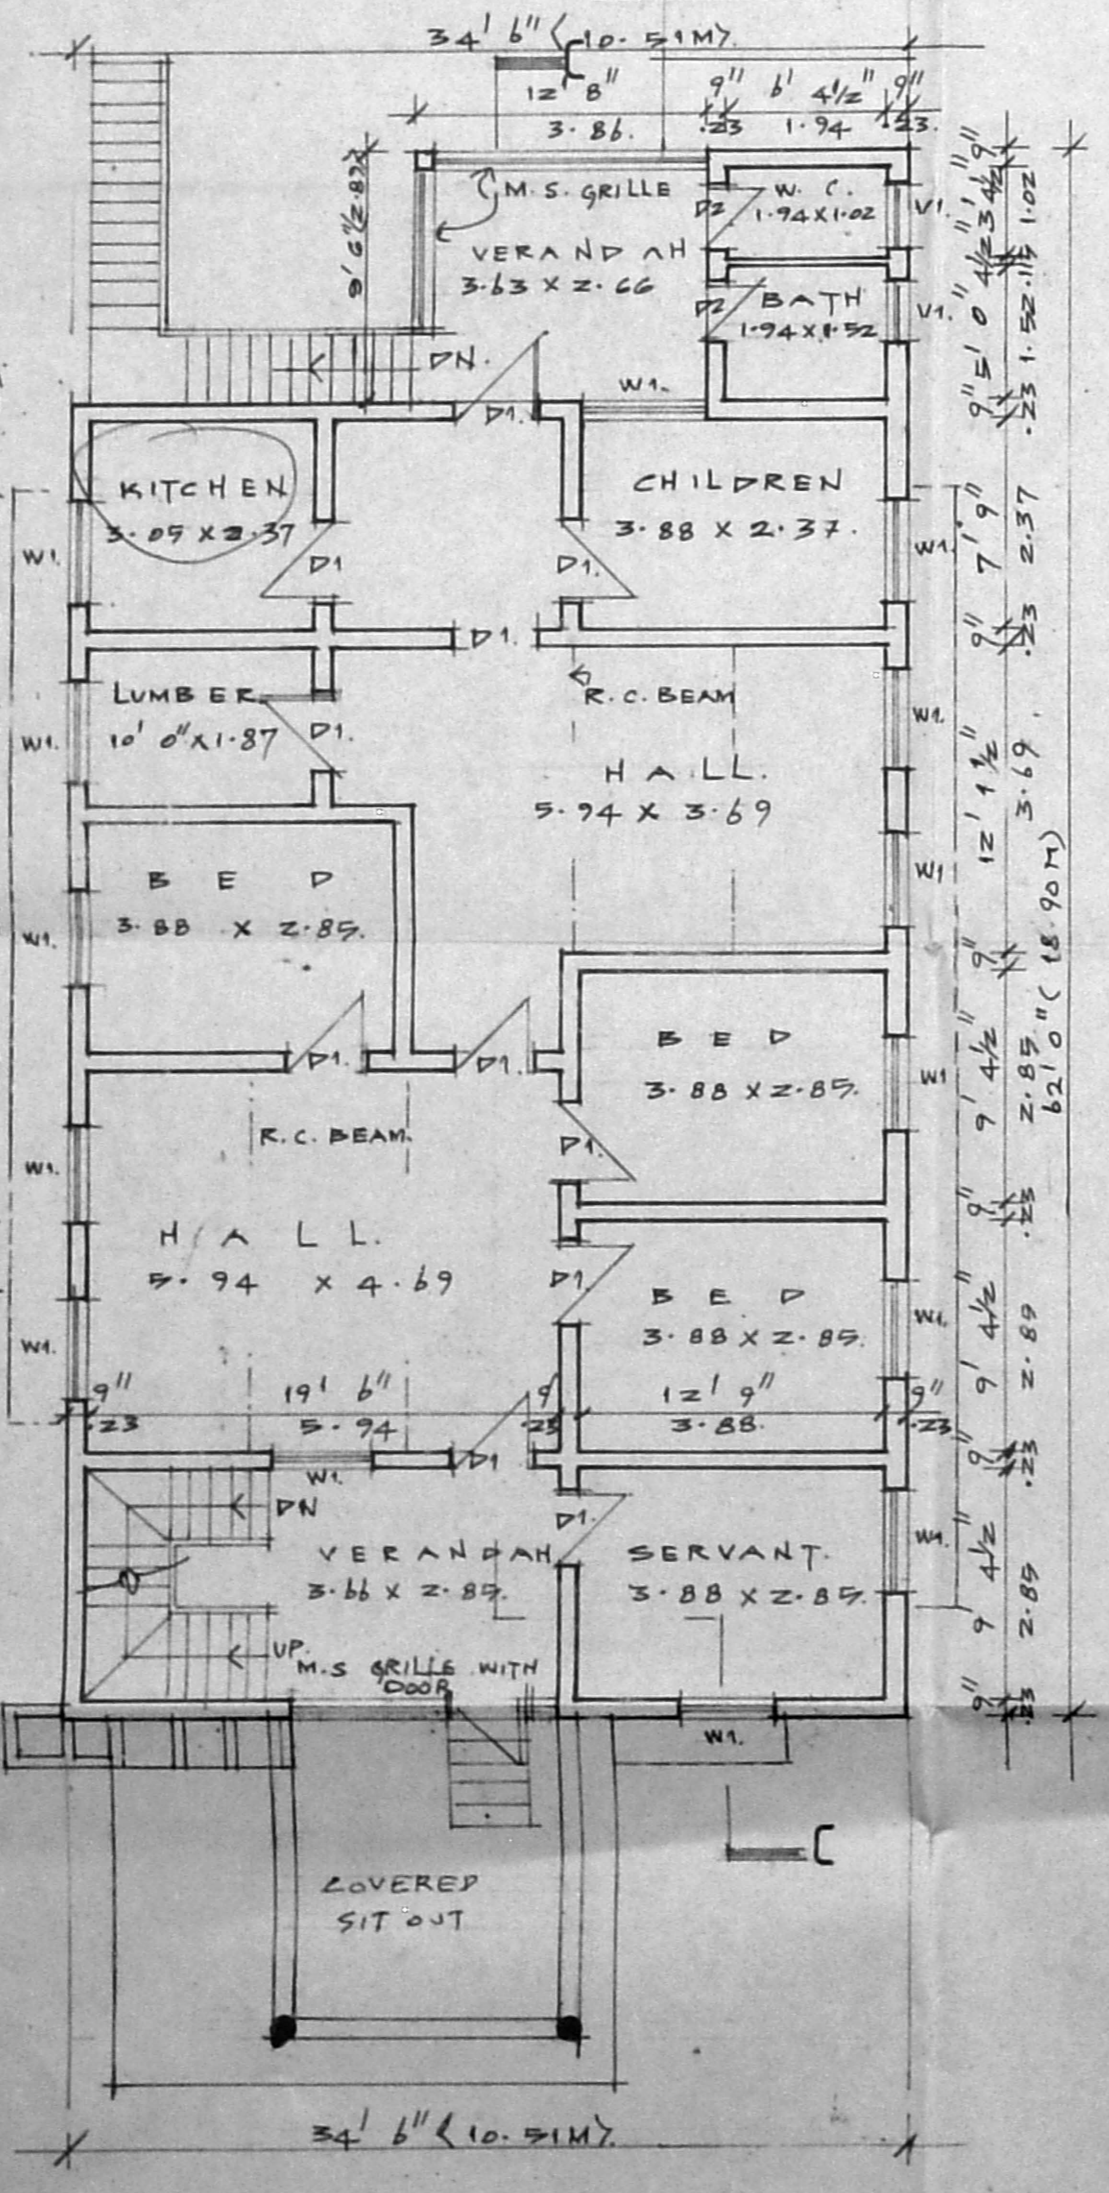 34' 6" (10.51M).
C
12' 8" 9" 6' 4½" 9"
3.86. .23 1.94 .23.
M.S. GRILLE
9' 6" (2.89)
VERANDAH
3.63 X 2.66
D2
W.C.
1.94X1.02
V1.
D2
BATH
1.94X1.52
V1.
DN.
D1.
W1.
KITCHEN
3.05 X 2.37
W1.
D1
D1.
CHILDREN
3.88 X 2.37.
W1.
D1.
LUMBER
10' 0" X 1.87
W1.
D1.
R.C. BEAM
W1.
HALL.
5.94 X 3.69
W1
BED
3.88 X 2.85.
W1.
D1.
D1.
BED
3.88 X 2.85.
W1
R.C. BEAM.
D1.
W1.
HALL.
5.94 X 4.69
D1
BED
3.88 X 2.85.
W1.
W1.
9" 19' 6" 9 12' 9" 9"
.23 5.94 23 3.88. .23
W1.
D1
DN
D1.
VERANDAH
3.66 X 2.85.
SERVANT.
3.88 X 2.85.
W1.
UP.
M.S GRILLE WITH
DOOR
W1.
C
COVERED
SIT OUT
34' 6" (10.51M).
9" 3' 4½" 4½" 5' 0" 9" 7' 9" 9" 12' 1½" 9" 9' 4½" 9" 9' 4½" 9" 9' 4½" 9"
1.02 .115 1.52 .23 2.37 .23 3.69. 2.85. .23 2.89 .23 2.85 .23
62' 0" (18.90M)